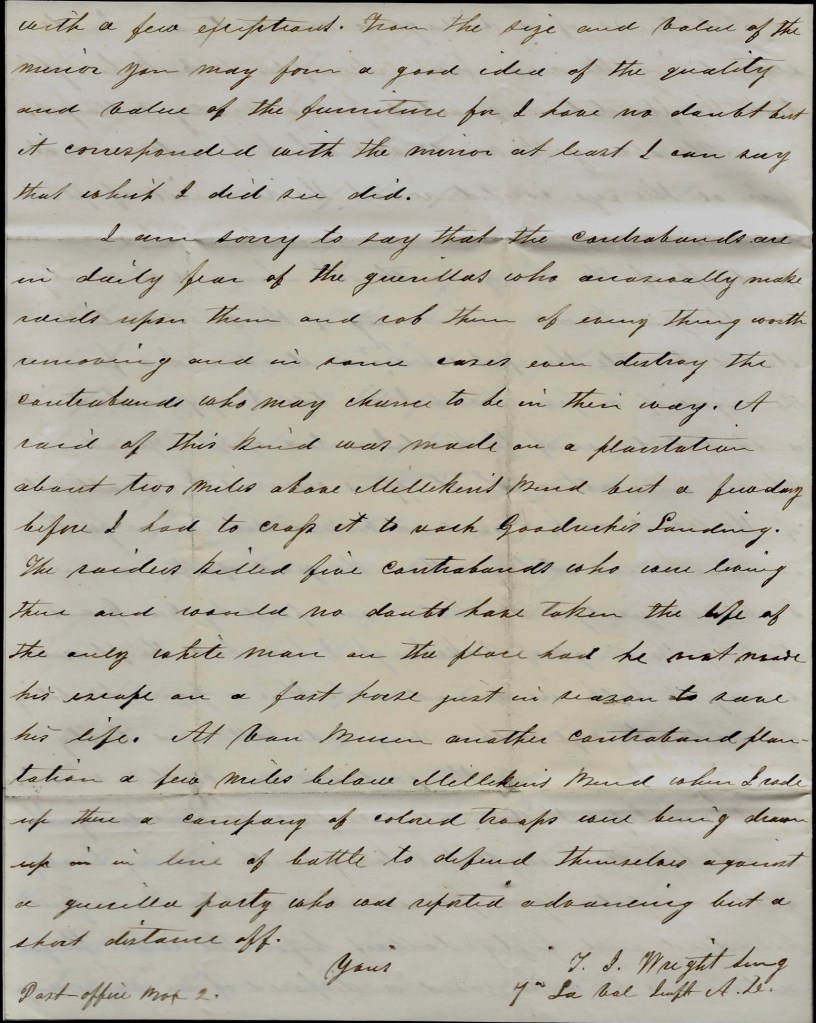 with a few exeptions. From the size and value of the
mirror you may form a good idea of the quality
and value of the furniture for I have no doubt but
it corresponded with the mirror at least I can say
that which I did see did.
I am sorry to say that the contrabands are
in daily fear of the guerillas who occasionally make
raids upon them and rob them of every thing worth
removing and in some cases even destroy the
contrabands who may chance to be in their way. A
raid of this kind was made on a plantation
about two miles above Milleken's Bend but a few days
before I had to cross it to reach Goodrich's Landing.
The raiders killed five contrabands who were living
there and would no doubt have taken the life of
the only white man on the place had he not made
his escape on a fast horse just in season to save
his life. At Van Buren another contraband plan-
tation a few miles below Milleken's Bend when I rode
up there a company of colored troops were being drawn
up in in line of battle to defend themselves against
a guerilla party who was reported advancing but a
short distance off.
Yours
J. J. Wright Surg
Post-office Box 2.
7th La Vol Inft A. D.